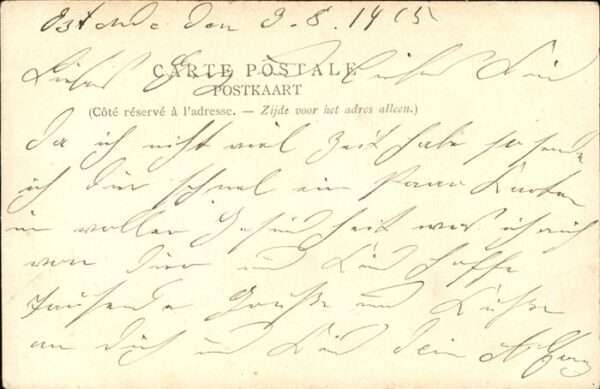 Ostende den 9.8.1915
Liebes und liebes Kind
CARTE POSTALE
POSTKAART
(Côté réservé à l'adresse. — Zijde voor het adres alleen.)
da ich nicht viel Zeit habe so sende
ich dir schnel ein Paar Karten
in voller Gesundheit was ich auch
von dir und Kind hoffe
tausende Grüße und Küsse
an dich und Kind dein